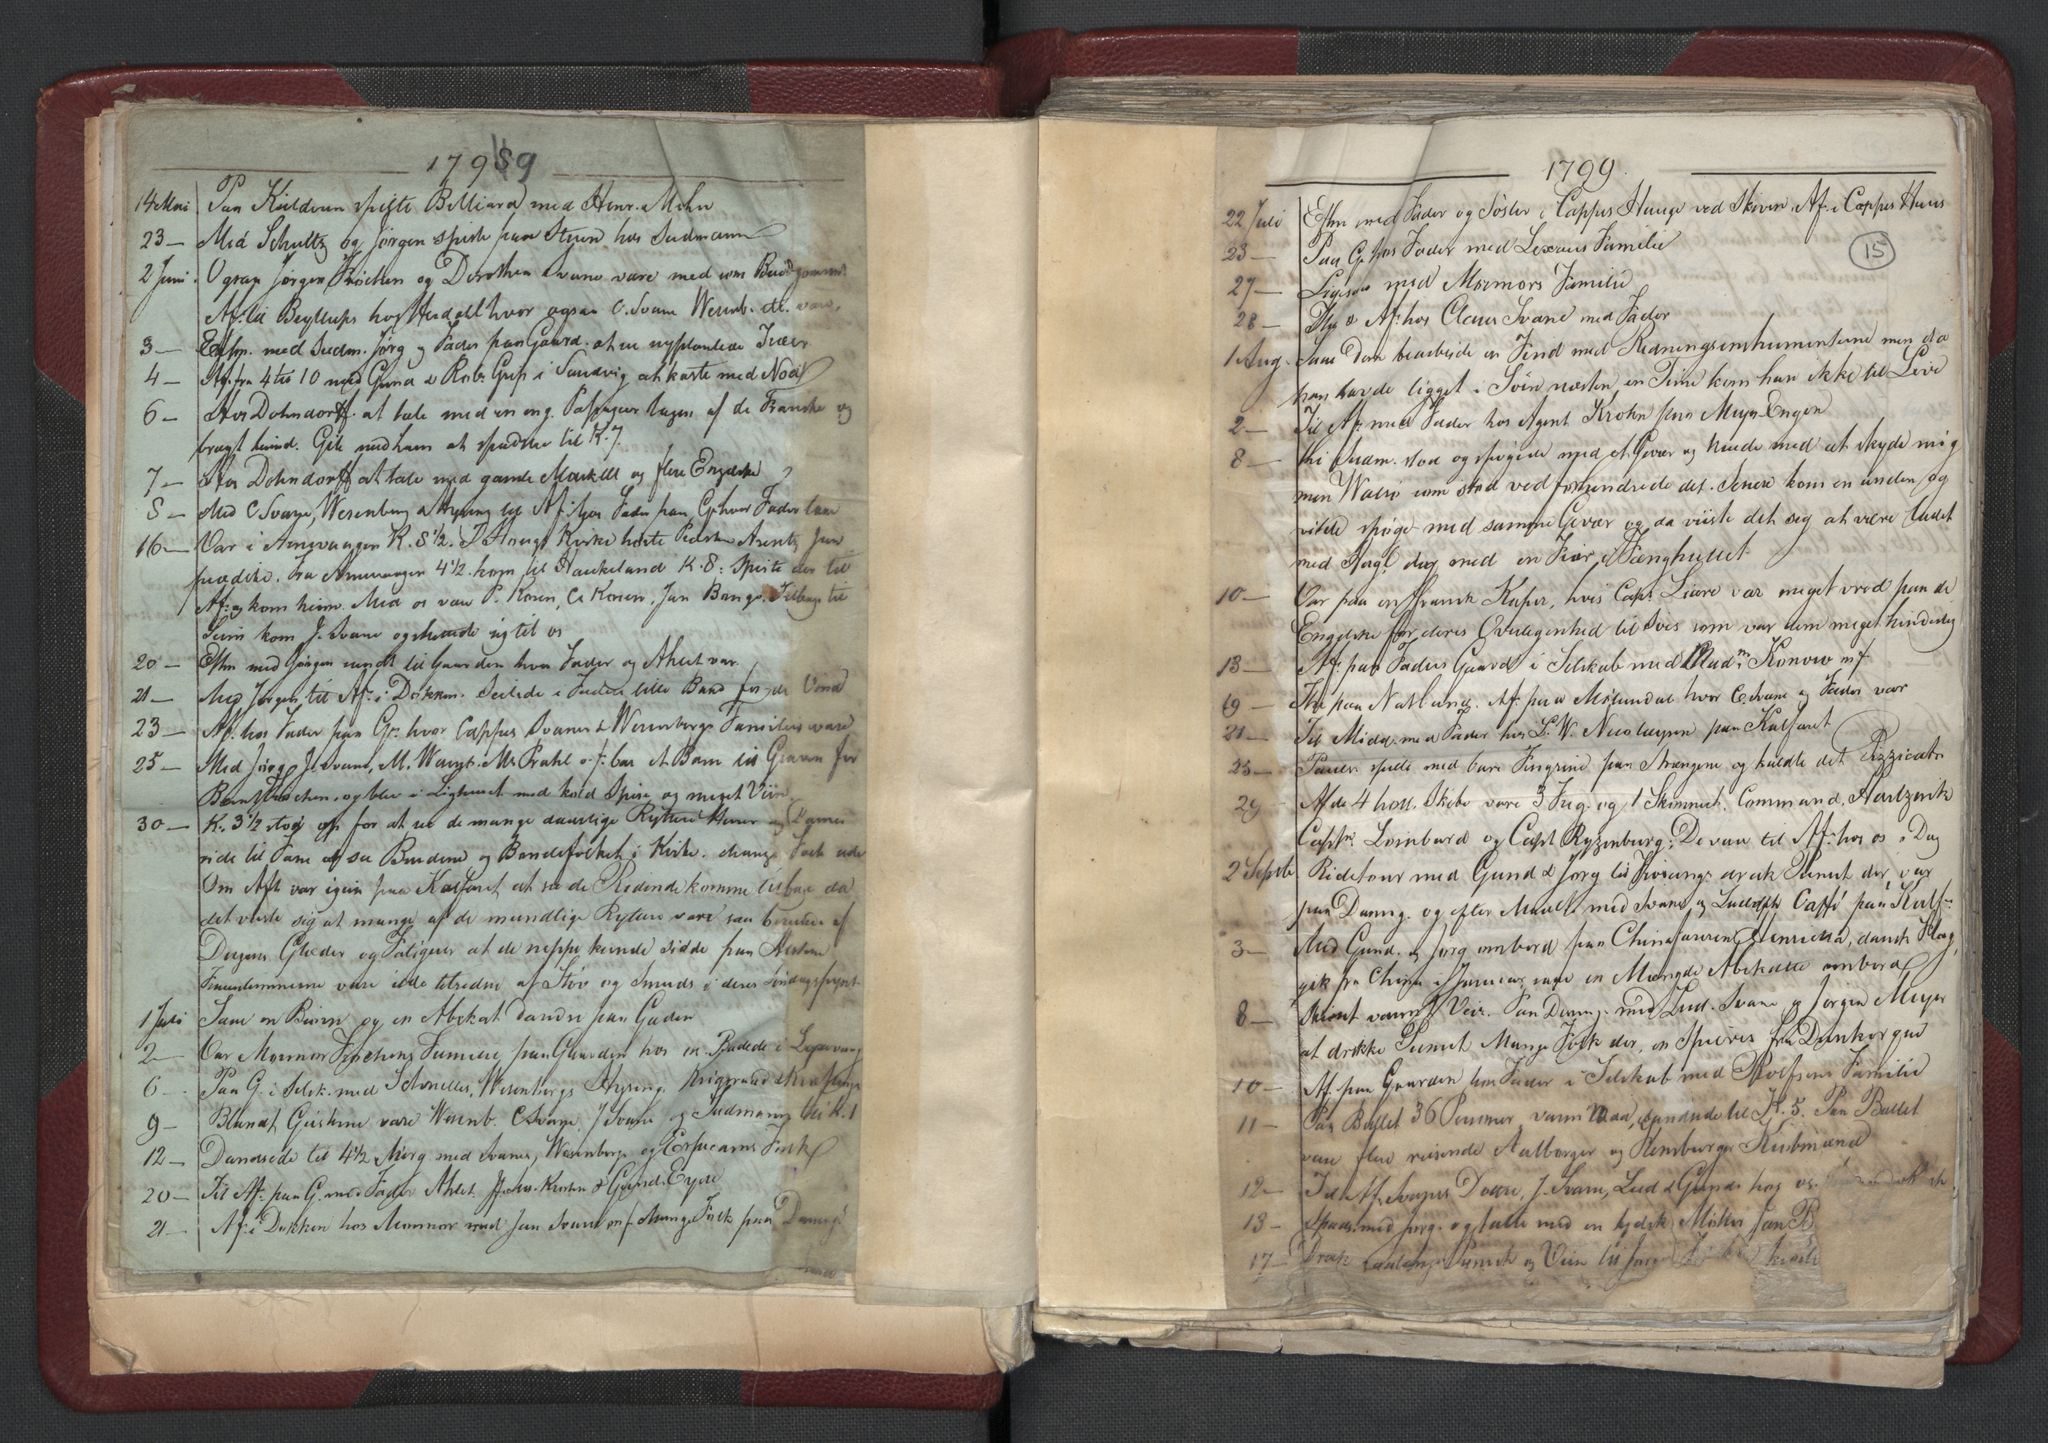 1799
14 Mai Paa Kuldeviin spilte Billiard med Henr. Mohr
23 — Med Schultz og Jørgen spiste paa Styen hos Sudmann
2 Juni Ogsaa Jørgen Friochen og Dorothea Svane vare med som Brudgomme.
Af. til Beyllups hos Herdahl hvor ogsaa C. Svane Wesenb. &c. vare.
3 — Eftm. med Sudm. Jørg og Fader paa Gaard. at se nyplantede Træer
4 — Af. fra 4 til 10 med Gund & Rob. Grip i Sandvig at kaste med Nod
6 — Hos Dohndorff at tale med en eng. Passageer tagen af de Franske og
bragt herind. Gik med ham at spadsere til K. 7
7 — Hos Dohndorff at tale med gamle Markell og flere Engelske
8 — Med C Svane, Wesenberg & Hysing til Af. hos Fader paa G. hvor Fader laae
16 — Var i Arnevaagen K. 8 1/2. I Haugs Kirke hørte Presten Arentz Jun
prædike. Fra Arnevaagen 4 1/2 kom til Haukeland K. 8: Spiste der til
Af. og kom heim. Med os var P. Konow, C. Konow, Jan Bang. Tilbage til
kom J. Svane og skettede sig til os
20 — Eftm med Jørgen rundt til Gaarden hvor Fader og Ahlert var.
21 — Med Jørgen til Af. i Dokken. Seilede i Faders lille Baad for de Vind
23 — Af. hos Fader paa G. hvor Cappes Svanes & Wesenbergs Familier vare
25 — Med Jørg J. Svane, M. Wernb. M. Prahl o. f. bar et Barn til Graven for
Bernt Friochen, og blev i Lighuset med kold Spise og meget Viin
30 — K. 3 1/2 stod op for at see de mange daarlige Ryttere Herrer og Damer
ride til Fane at see Brudene og Bondefolket i Kirke. Mange Folk ude
Om Aft. var igien paa Kalfaret at se de Ridende komme tilbage da
det viste sig at mange af de mandlige Ryttere vare saa berusede af
Dagens Glæder og Fatiguer at de neppe kunde sidde paa Hestene
Fruentimmerne vare ilde tilredne af Støv og Smuds i deres Søndagspynt
1 Juli Saae en Biørn og en Abekat dandse paa Gaden
2 — Var Mormor Friochens Familie paa Gaarden hos os. Badede i Lexevaag
6 — Paa G. i Selsk. med Schnelles, Wesenbergs Hysing, Krigsraad
9 — Blandt Giesterne vare Wesenb. C Svane, J Svane og Sudmann, til K. 1
12 — Dandsede til 4 1/2 Morg. med Svanes, Wesenbergs og Folk
20 — Til Af. paa G. med Fader Ahlert & Gund. Eyde
21 — Af. i Dokken hos Mormor med Jan Svane o f Mange Folk paa Damsg.
1799.
15
22 Juli Eftm med Fader og Søster i Cappes Hauge ved Skiven. Af. i Cappes Huus
23 — Paa G. hos Fader med Lexaus Familie
27 — Ligesaa med Mormors Familie
28 — Og & Af. hos Claus Svane med Fader
1 Aug. Saae Dem bearbeide en Find med Redningsinstrumenterne men da
han havde ligget i Søen næsten en Time kom han ikke til Live
2 — Til Af. med Fader hos Agent Krohn paa Meyer-Engen
8 — thi Sudm. stod og spøgede med et Gevær og truede med at skyde mig
men som stod ved forhindrede det. Senere kom en anden og
vilde spøge med samme Gevær og da viiste det sig at være ladet
med Hagl dog med en Fiær i Fænghullet
10 — Var paa en fransk Kaper, hvis Capt. Liere var meget vred paa de
Engelske for deres Overlegenhed til Søes som var dem meget hinderlig
13 — Af. paa Faders Gaard i Selskab med Mad.m Konow m f.
19 — The paa Natland. Af. paa Møllendal hvor C. Svane og Fader var
21 — Til Midd. med Fader hos L. W. Nicolaysen paa Kalfaret
25 — spilte med bare Fingrene paa Strængene og kaldte det Pizzicato
29 — Af de 4 holl. Skibe vare 3 Freg. og 1 Skinnert. Command. Hartzenk
Captn. Lombard og Capt Ryzenburg; De vare til Af. hos os i Dag
2 Septb Ridetour med Gund & Jørg til drak Punch der var
paa Damsg. og efter Maaltid med Svane og Ludolph Caffé paa Kalf.
3 — Med Gund. og Jørg ombord paa Chinafareren Henrietta, dansk Flag,
gik fra China i Januar, vare en Mængde Abekatte ombord
8 — Skiønt varmt Veir. Paa Damsg. med Lud. Svane og Jørgen Meyer
at drikke Punch Mange Folk der, en fra Dunkerque
10 — Af. paa Gaarden hos Fader i Selskab med Rolfsens Familie
11 — Paa Ballet 36 Personer varm Mad, dandsede til K. 5. Paa Ballet
vare flere reisende Aalborger og Flensburger Kiøbmænd
12 — Til Af. Svanes Dottre, J. Svane, Lud & Gunds hos os.
13 — Spads. med Jørg. og talte med en tydsk Jan B
17 — Drak Punch og Viin til Jørg